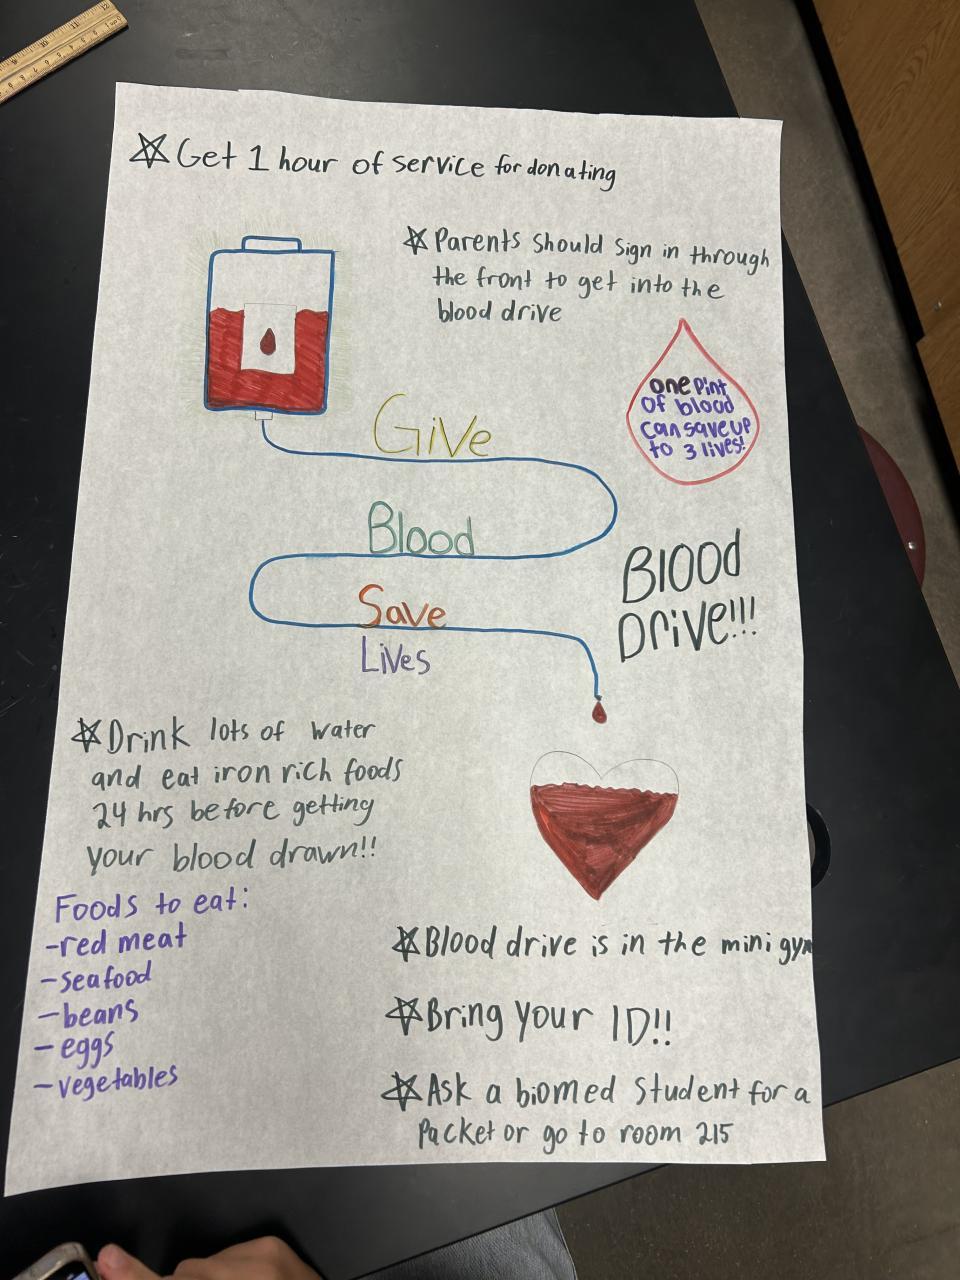 Get 1 hour of service for donating
Parents should sign in through
the front to get into the
blood drive
one pint
of blood
can save up
to 3 lives!
Give
Blood
Save
Lives
Blood
Drive!!!
Drink lots of water
and eat iron rich foods
24 hrs before getting
your blood drawn!!
Foods to eat:
-red meat
-seafood
-beans
-eggs
-vegetables
Blood drive is in the mini gym
Bring your ID!!
Ask a biomed student for a
packet or go to room 215